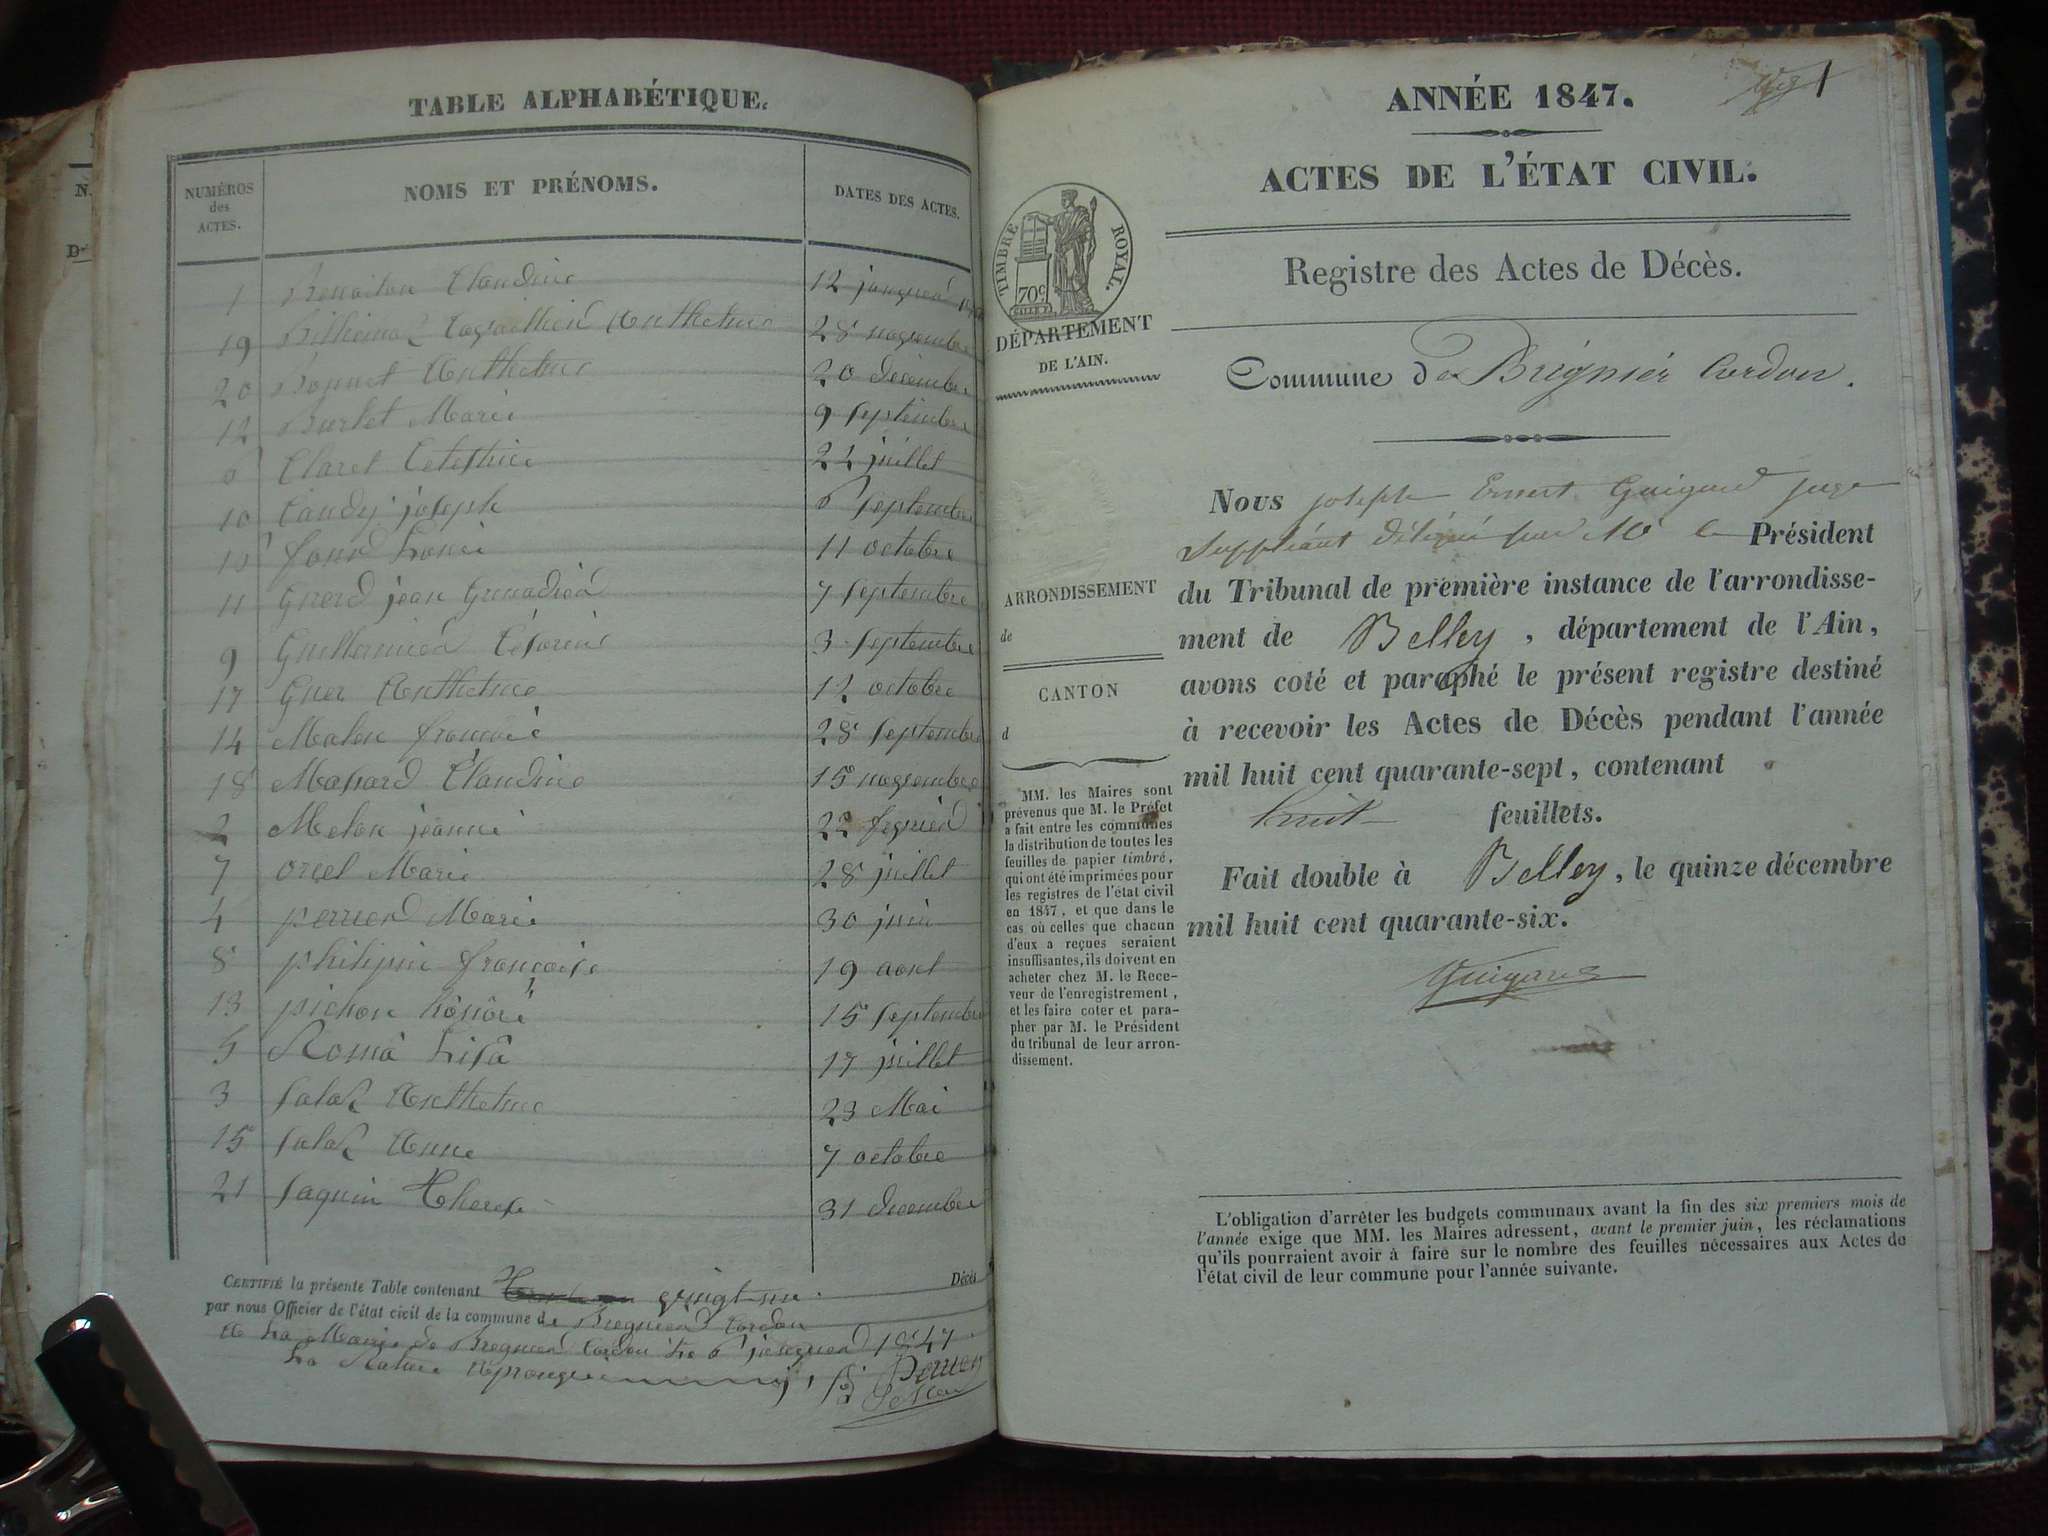 TABLE ALPHABÉTIQUE.
NUMÉROS des ACTES. NOMS ET PRÉNOMS. DATES DES ACTES.
1 Benoiton Claudine 12
19 Anthelme 28
20 Bonnet Anthelme 20 décembre
12 Burlet Marie 9 septembre
6 Claret 22 juillet
10 Candy joseph 6 septembre
11 octobre
11 jean 7 septembre
9 3 septembre
17 Anthelme 12 octobre
14 Melon 28 septembre
18 Massard Claudine 15
2 Melon jeanne 22
7 orcel Marie 28 juillet
4 perrier Marie 30 juin
8 philipin françoise 19 aout
13 pichon hônôré 15 septembre
5 Romà Lisà 17 juillet
3 Anthelme 23 Mai
15 Anne 7 octobre
21 Saquin Therese 31 decembre
CERTIFIÉ la présente Table contenant vingt-un Décès
par nous Officier de l'état civil de la commune de Bregnier Cordon
A La Mairie de Bregnier Cordon Le 6 1847
Perrier
ANNÉE 1847.
1
ACTES DE L'ÉTAT CIVIL.
Registre des Actes de Décès.
TIMBRE ROYAL.
70c
DÉPARTEMENT
DE L'AIN.
Commune de Brégnier Cordon.
ARRONDISSEMENT
de
CANTON
d
MM. les Maires sont
prévenus que M. le Préfet
a fait entre les communes
la distribution de toutes les
feuilles de papier timbré,
qui ont été imprimées pour
les registres de l'état civil
en 1847, et que dans le
cas où celles que chacun
d'eux a reçues seraient
insuffisantes, ils doivent en
acheter chez M. le Rece-
veur de l'enregistrement,
et les faire coter et para-
pher par M. le Président
du tribunal de leur arron-
dissement.
Nous joseph Ernest Guigard juge
Suppléant délégué par Mr le Président
du Tribunal de première instance de l'arrondisse-
ment de Belley, département de l'Ain,
avons coté et paraphé le présent registre destiné
à recevoir les Actes de Décès pendant l'année
mil huit cent quarante-sept, contenant
huit feuillets.
Fait double à Belley, le quinze décembre
mil huit cent quarante-six.
Guigard
L'obligation d'arrêter les budgets communaux avant la fin des six premiers mois de
l'année exige que MM. les Maires adressent, avant le premier juin, les réclamations
qu'ils pourraient avoir à faire sur le nombre des feuilles nécessaires aux Actes de
l'état civil de leur commune pour l'année suivante.